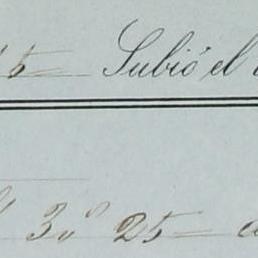 5= Subió el
3º 25=